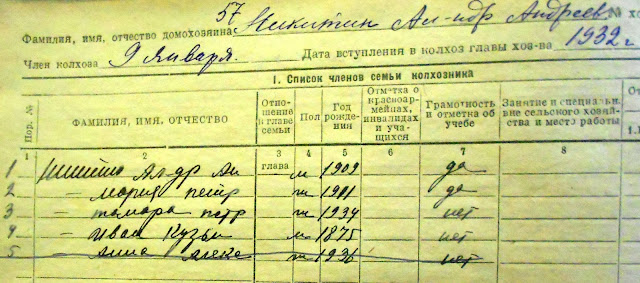 57 Никитин Ал-ндр Андреев.
Фамилия, имя, отчество домохозяина № хо
Член колхоза 9 Января. Дата вступления в колхоз главы хоз-ва 1932 г
I. Список членов семьи колхозника
Пор. № ФАМИЛИЯ, ИМЯ, ОТЧЕСТВО Отношение к главе семьи Пол Год рождения Отметка о красноармейцах, инвалидах и учащихся Грамотность и отметка об учебе Занятие и специальн. вне сельского хозяйства и место работы От
1 2 3 4 5 6 7 8 1.
1 Никитин Ал-др Ан глава м 1909 да
2 — Мария Петр ж 1911 да
3 — Тамара Петр ж 1934 нет
4 — Иван Кузьм м 1875 нет
5 — Анна Алекс ж 1936 нет